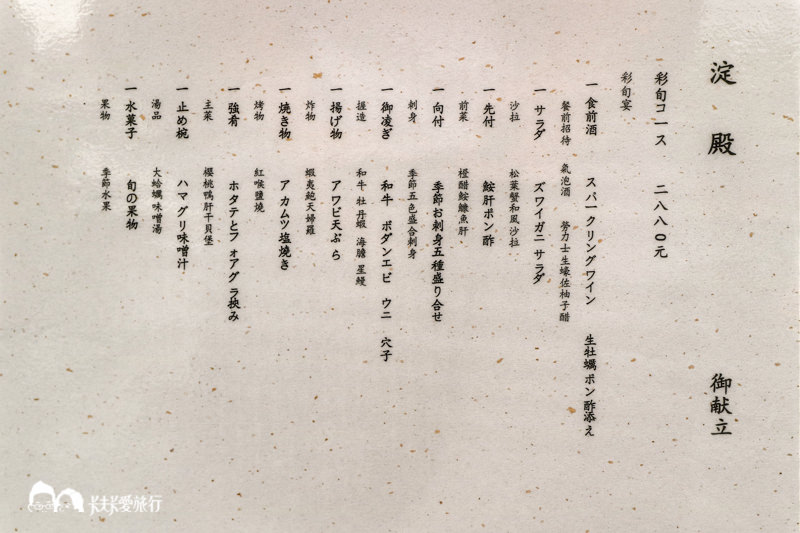 淀殿 御献立
彩旬コース 二八八〇元
彩旬宴
一 食前酒 スパークリングワイン 生牡蠣ポン酢添え
餐前招待 氣泡酒 勞力士生蠔佐柚子醋
一 サラダ ズワイガニサラダ
沙拉 松葉蟹和風沙拉
一 先付 鮟肝ポン酢
前菜 橙醋鮟鱇魚肝
一 向付 季節お刺身五種盛り合せ
刺身 季節五色盛合刺身
一 御凌ぎ 和牛 ボダンエビ ウニ 穴子
握造 和牛 牡丹蝦 海膽 星鰻
一 揚げ物 アワビ天ぷら
炸物 蝦夷鮑天婦羅
一 焼き物 アカムツ塩焼き
烤物 紅喉鹽燒
一 強肴 ホタテとフォアグラ挟み
主菜 櫻桃鴨肝干貝堡
一 止め椀 ハマグリ味噌汁
湯品 大蛤蠣味噌湯
一 水菓子 旬の果物
果物 季節水果
卡夫卡愛旅行